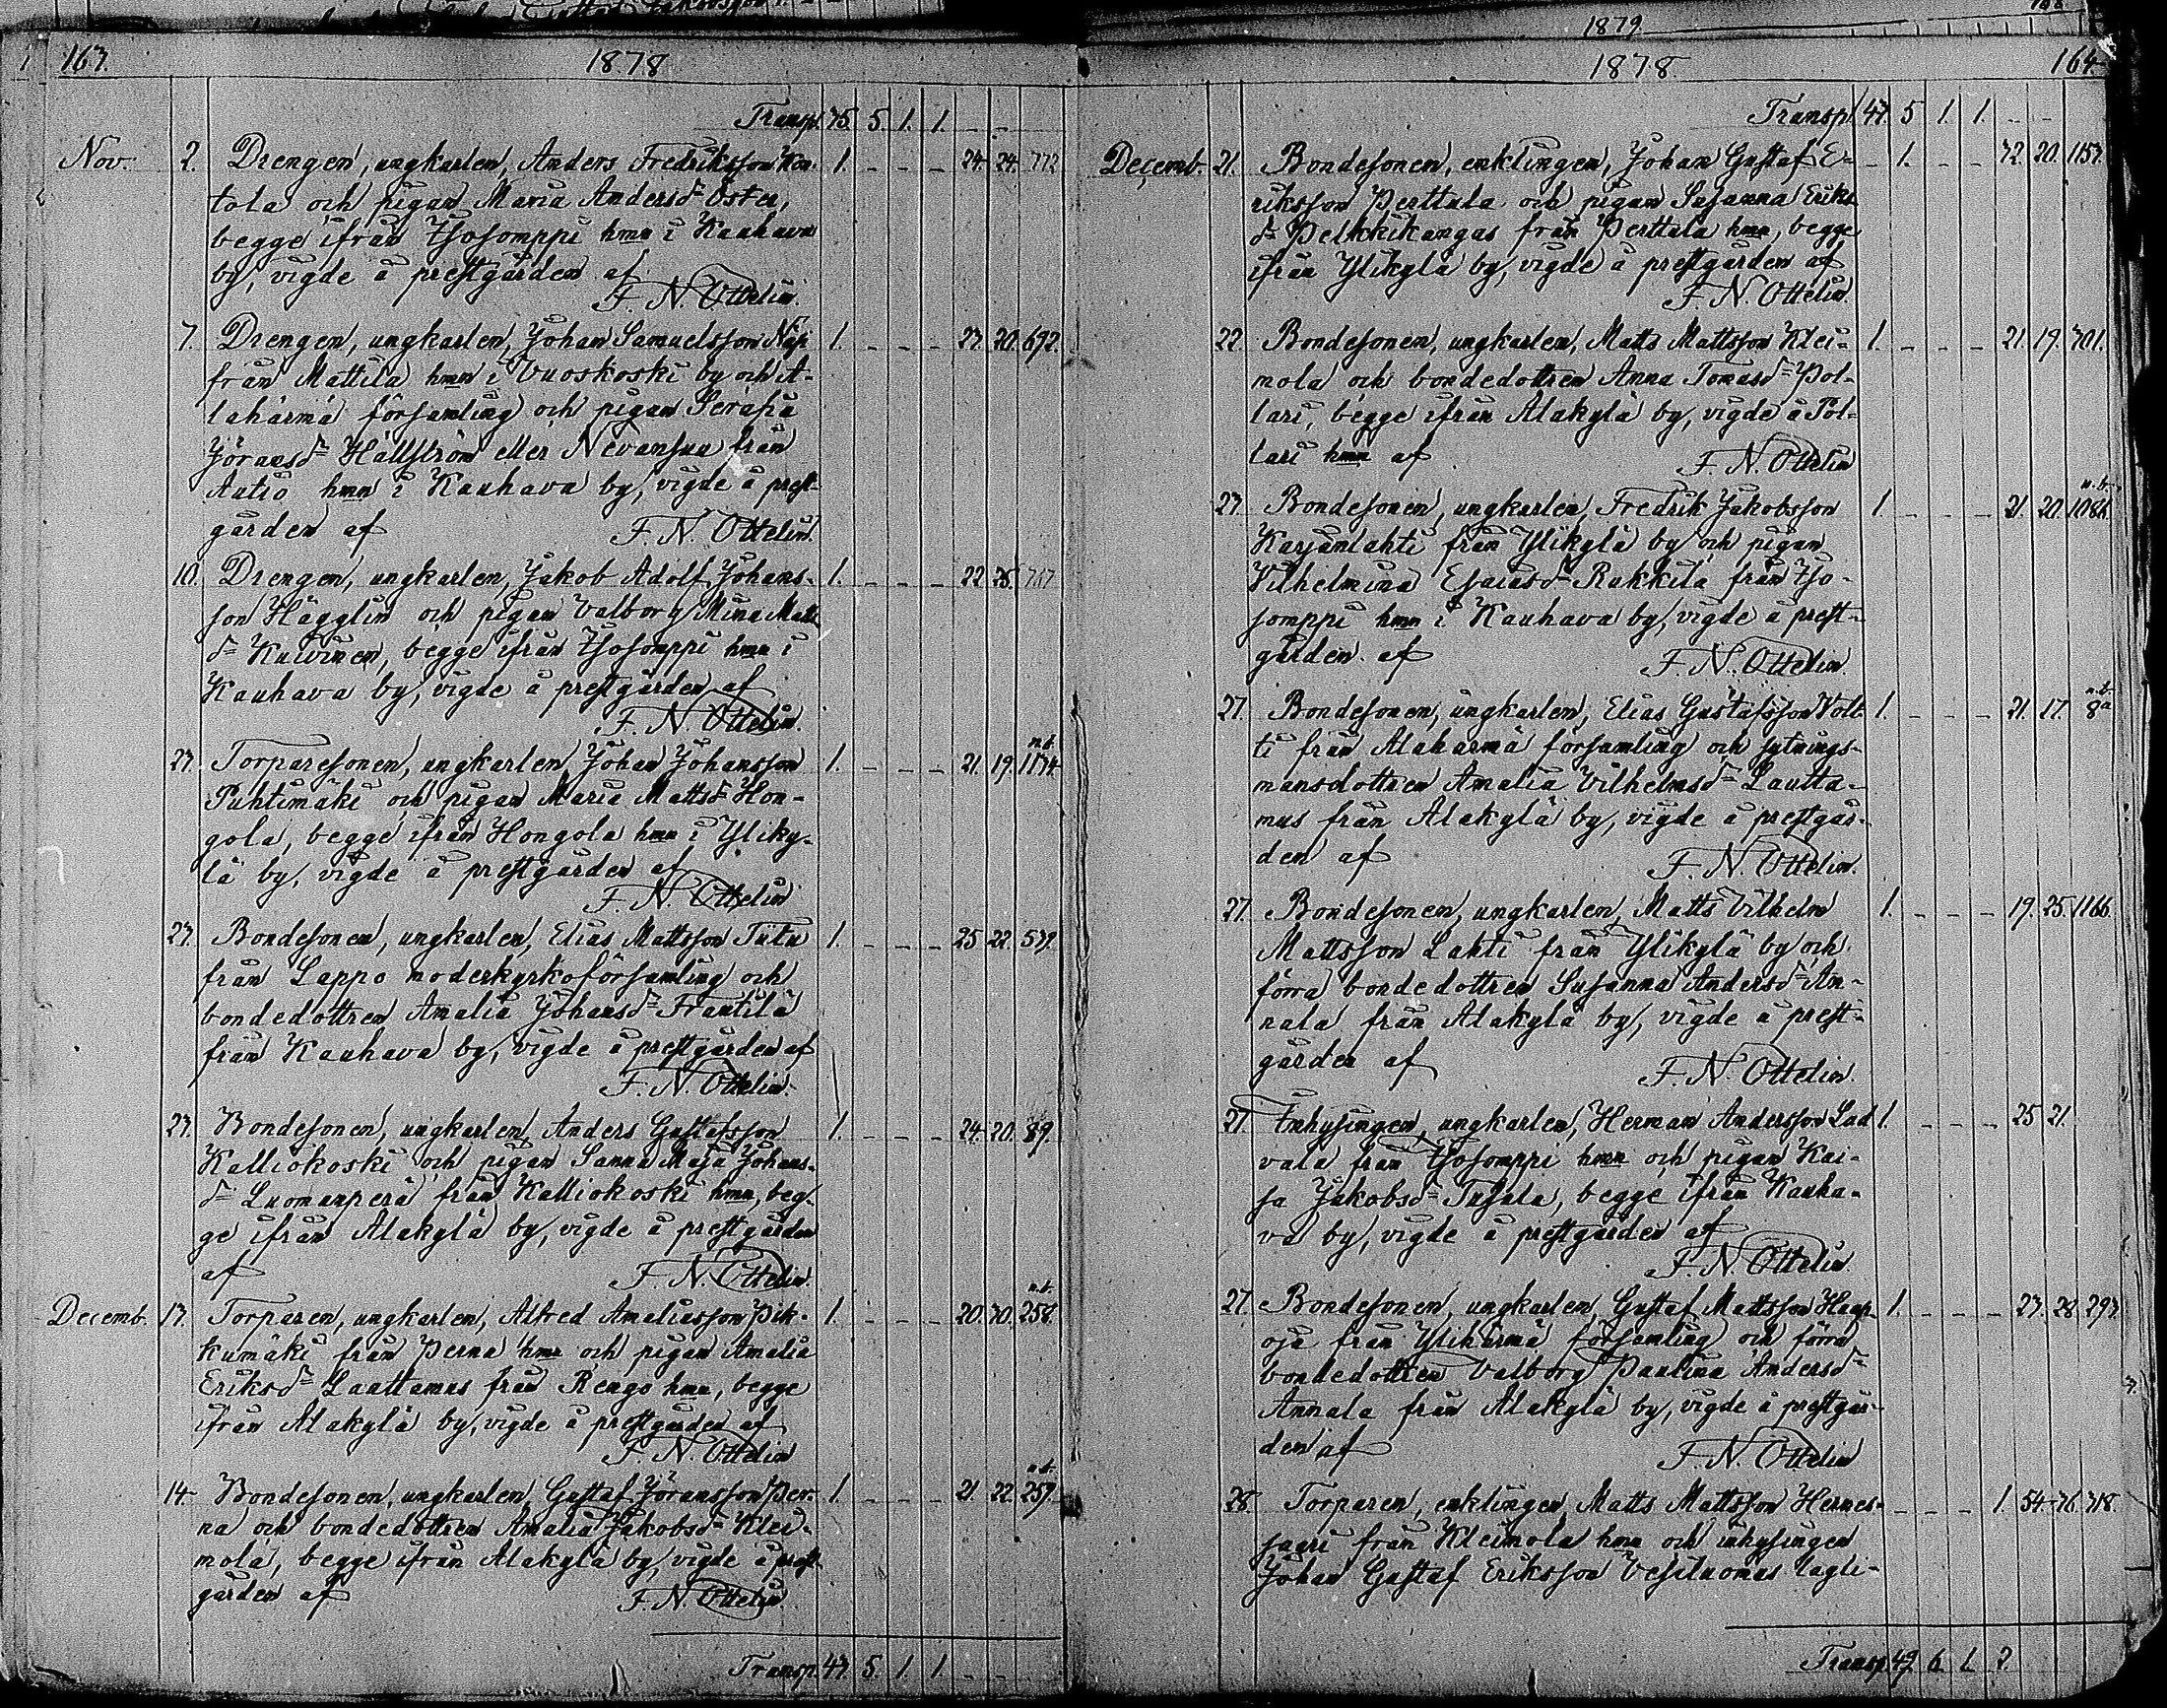 163. 1878
Transp. 35. 5. 1. 1. - -
Nov. 2. Drengen, ungkarlen, Anders Fredriksson Kon- 1. - - - 24. 24. 772
tola och pigan Maria Andersdr Öster,
begge ifrån Isosomppi hmn i Kauhava
by, vigde å prestgården af
F. N. Ottelin.
7. Drengen, ungkarlen, Johan Samuelsson Näpi 1. - - - 23. 20. 692.
från Mattila hmn i Vuoskoski by och A-
lahärmä församling och pigan Serafia
Jöransdr Hällström eller Nevansuu från
Autio hmn i Kauhava by, vigde å prest-
gården af F. N. Ottelin.
10. Drengen, ungkarlen, Jakob Adolf Johans- 1. - - - 22. 28.
son Hägglin och pigan Valborg Mina Matts
dr Kuivinen, begge ifrån Isosomppi hmn i
Kauhava by, vigde å prestgården af
F. N. Ottelin.
23. Torparesonen, ungkarlen, Johan Johansson 1. - - - 21. 19. n.b. 1134.
Puhtimäki och pigan Maria Mattsdr Hon-
gola, begge ifrån Hongola hmn i Yliky-
lä by, vigde å prestgården af
F. N. Ottelin
23. Bondesonen, ungkarlen, Elias Mattsson Tutu 1. - - - 25 22. 539.
från Lappo moderkyrkoförsamling och
bondedottren Amalia Johansdr Frantilä
från Kauhava by, vigde å prestgården af
F. N. Ottelin.
23. Bondesonen, ungkarlen, Anders Gustafsson 1. - - - 24. 20. 89.
Kalliokoski och pigan Sanna Maja Johans-
dr Luomanperä från Kalliokoski hmn, beg-
ge ifrån Alakylä by, vigde å prestgården
af F. N. Ottelin.
Decemb. 13. Torparen, ungkarlen, Alfred Amaliasson Pik- 1. - - - 20. 30. n.b. 258.
kumäki från Perna hmn och pigan Amalia
Eriksdr Lauttamus från Rengo hmn, begge
ifrån Alakylä by, vigde å prestgården af
F. N. Ottelin
14. Bondesonen, ungkarlen, Gustaf Jöransson Per- 1. - - - 21. 22. n.b. 257.
na och bondedottren Amalia Jakobsdr Klei-
mola, begge ifrån Alakylä by, vigde å prest-
gården af F. N. Ottelin.
Transp. 43. 5. 1. 1. - -
1879.
1878. 164
Transp. 43. 5 1. 1. - -
Decemb. 21. Bondesonen, enklingen, Johan Gustaf E- - 1. - - 32. 20. 1153.
riksson Perttula och pigan Susanna Eriks
dr Pelkkikangas från Perttula hmn, begge
ifrån Ylikylä by, vigde å prestgården af
F. N. Ottelin.
22. Bondesonen, ungkarlen, Matts Mattsson Klei- 1. - - - 21. 19. 301.
mola och bondedottren Anna Tomasdr Pol-
lari, begge ifrån Alakylä by, vigde å Pol-
lari hmn af F. N. Ottelin
27. Bondesonen, ungkarlen, Fredrik Jakobsson 1. - - - 21. 20. n.b. 1086.
Karjanlahti från Ylikylä by och pigan
Vilhelmina Esaiasdr Rukkila från Iso-
somppi hmn i Kauhava by, vigde å prest-
gården af F. N. Ottelin.
27. Bondesonen, ungkarlen, Elias Gustafsson Volt- 1. - - - 21. 17. n.b. 8a
ti från Alahärmä församling och sytnings-
mansdottren Amalia Vilhelmsdr Lautta-
mus från Alakylä by, vigde å prestgår-
den af F. N. Ottelin.
27. Bondesonen, ungkarlen, Matts Vilhelm 1. - - - 19. 25. 1166.
Mattsson Lahti från Ylikylä by och
förra bondedottren Susanna Andersdr An-
nala från Alakylä by, vigde å prest-
gården af F. N. Ottelin.
27. Inhysingen, ungkarlen, Herman Andersson Lad- 1. - - - 25 21.
vala från Isosomppi hmn och pigan Kai-
sa Jakobsdr Tusala, begge ifrån Kauha-
va by, vigde å prestgården af
F. N. Ottelin.
27. Bondesonen, ungkarlen, Gustaf Mattsson Haap- 1. - - - 23. 28. 293.
oja från Ylihärmä församling och förra
bondedottren Valborg Paulina Andersdr
Annala från Alakylä by, vigde å prestgår-
den af F. N. Ottelin
28. Torparen, enklingen Matts Mattsson Hernes- - - - 1. 54. 36. 318.
saari från Kleimola hmn och inhysingen
Johan Gustaf Eriksson Vesiluomas lagli-
Transp. 49. 6. 1. 2.